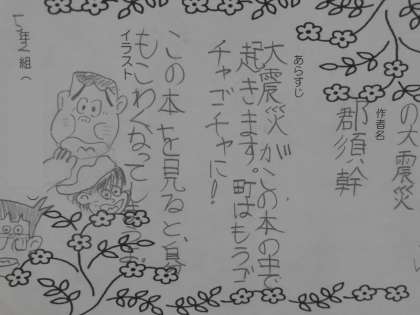 の大震災
作者名
郡須 幹
あらすじ
大震災がこの本の中で
起きます。町はもうゴ
チャゴチャに!!
この本を見ると、身
もこわくなって
イラスト
5年2組